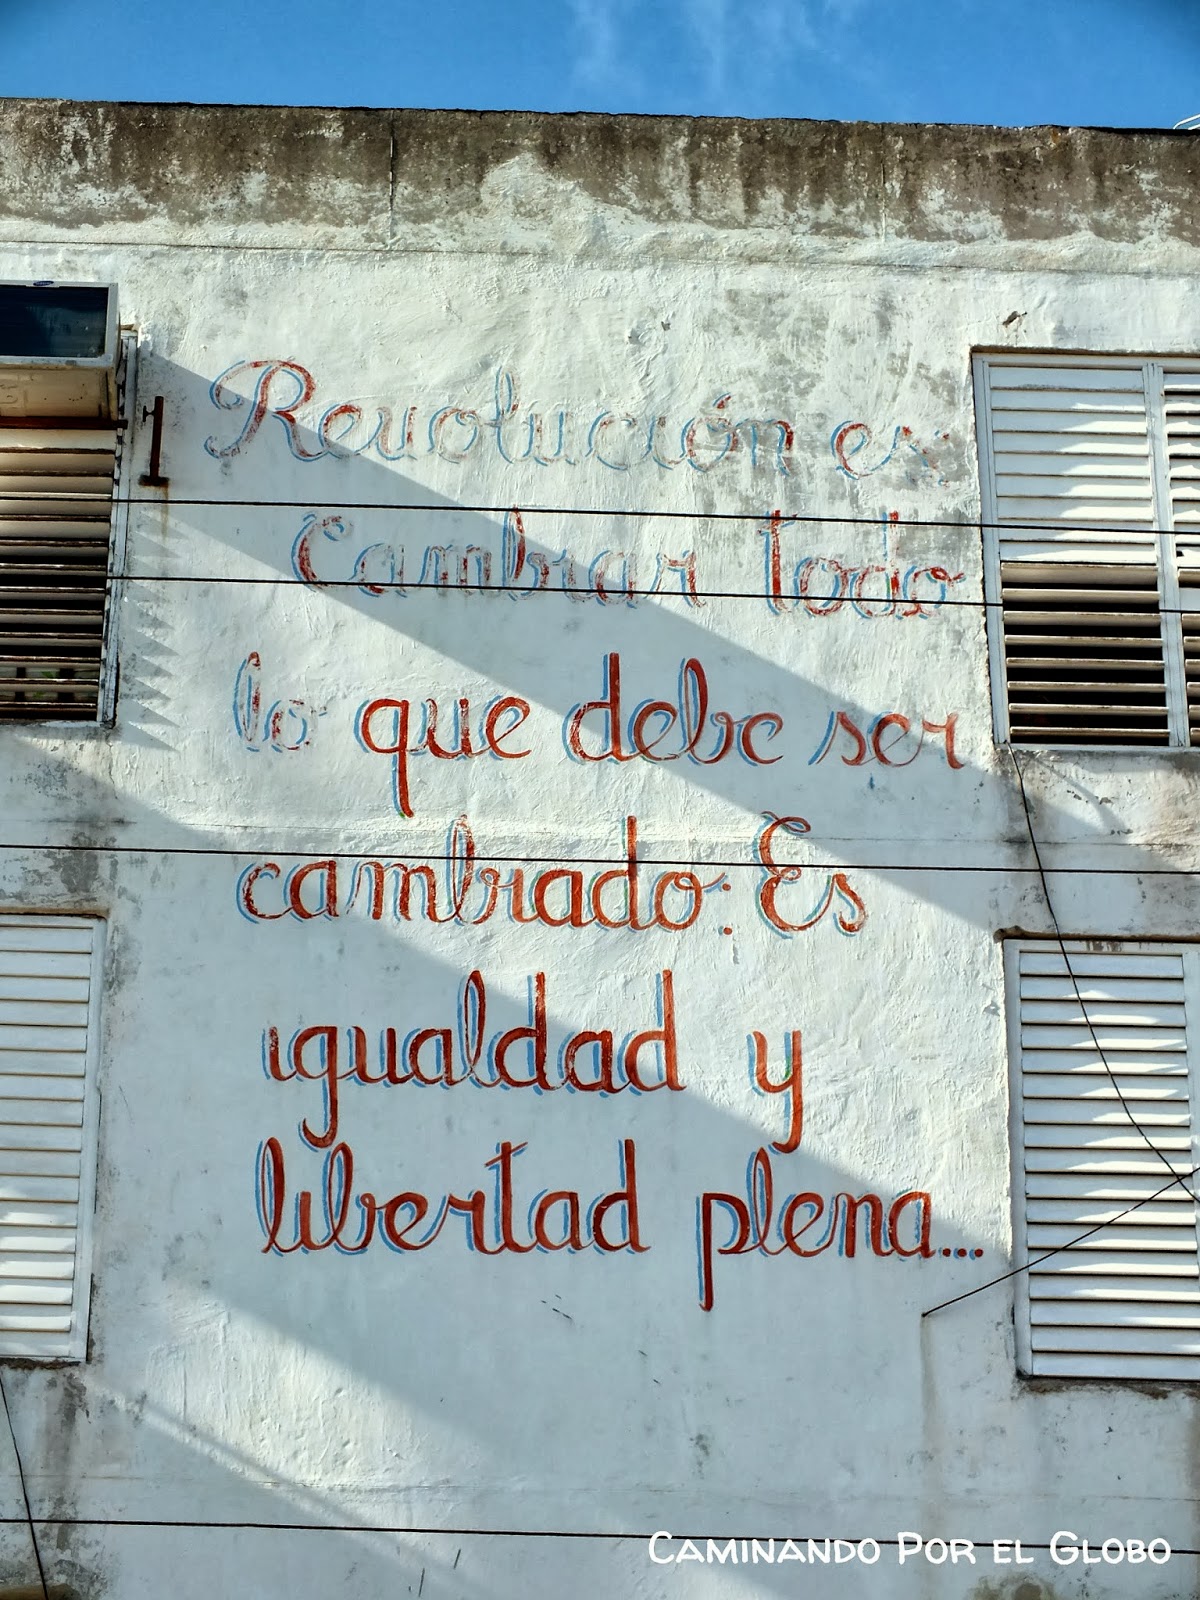 Revolución es
Cambiar todo
lo que debe ser
cambrado: Es
igualdad y
libertad plena...
CAMINANDO POR EL GLOBO